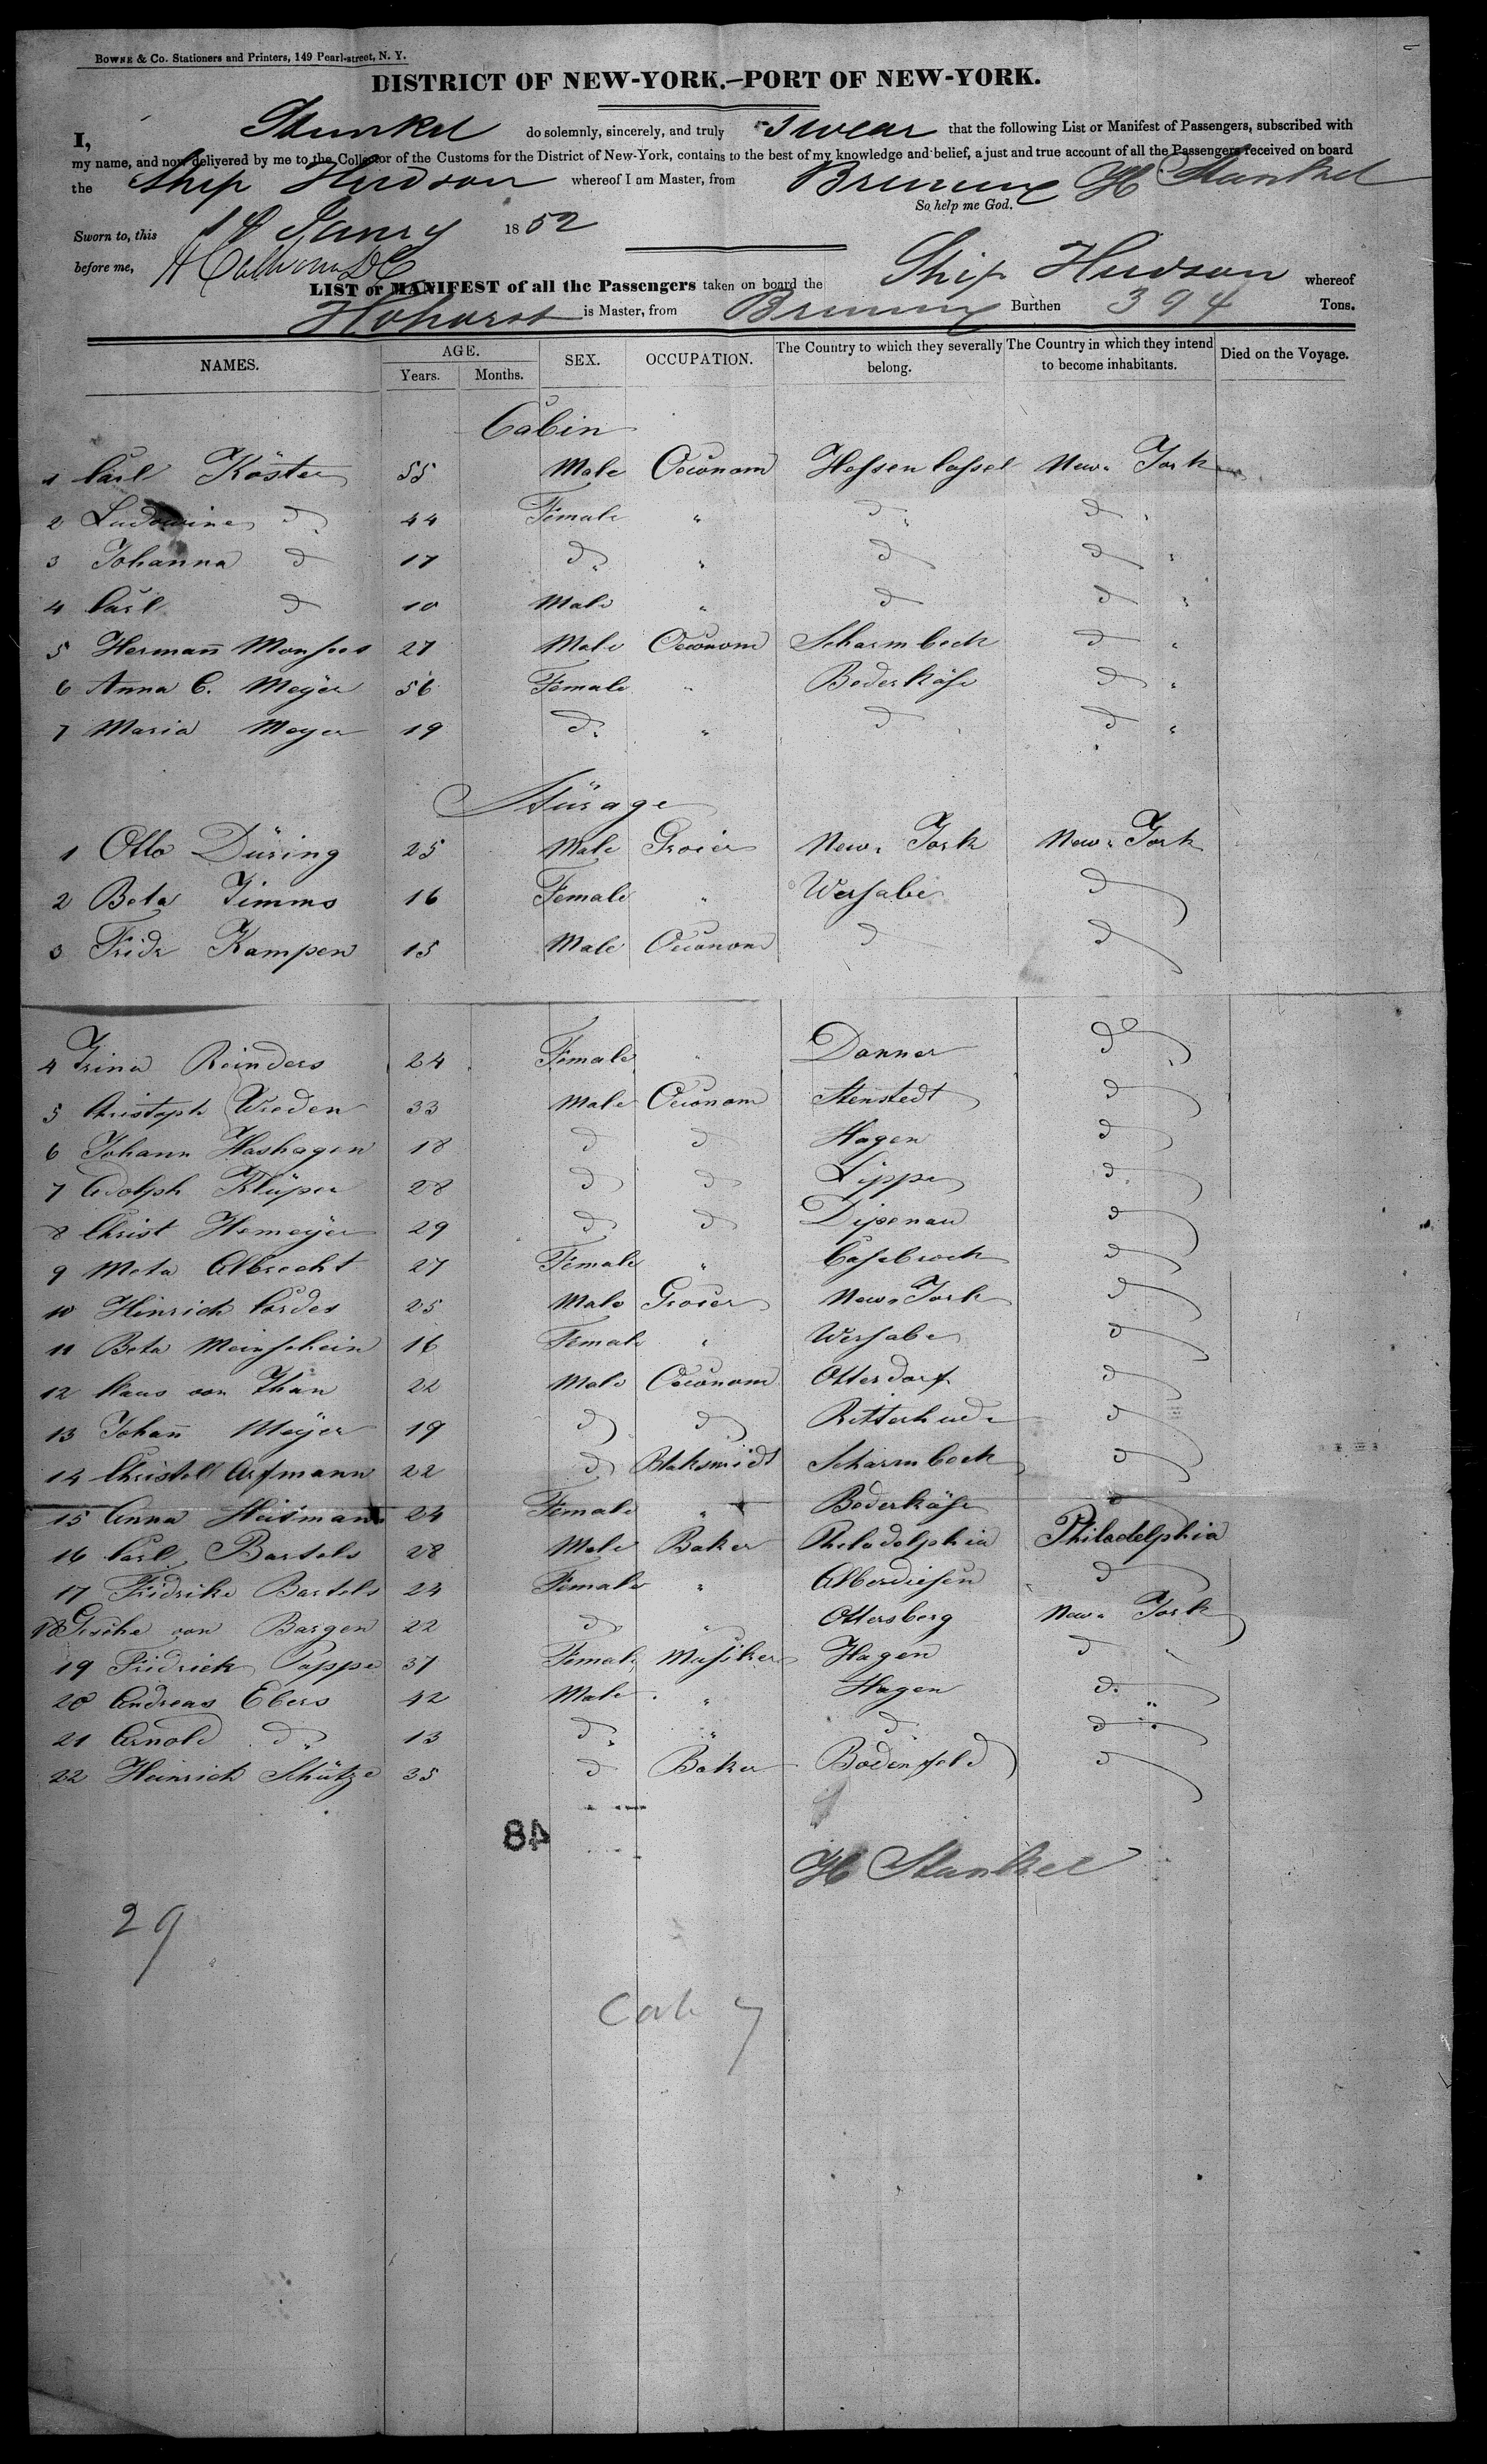 BOWNE & Co. Stationers and Printers, 149 Pearl-street, N. Y.
DISTRICT OF NEW-YORK.—PORT OF NEW-YORK.
I, Stunkel do solemnly, sincerely, and truly Swear that the following List or Manifest of Passengers, subscribed with
my name, and now delivered by me to the Collector of the Customs for the District of New-York, contains to the best of my knowledge and belief, a just and true account of all the Passengers received on board
the Ship Hudson whereof I am Master, from Bremen H Stunkel
So help me God.
Sworn to, this 1852
before me,
LIST or MANIFEST of all the Passengers taken on board the Ship Hudson whereof
Hohorst is Master, from Bremen Burthen 394 Tons.
NAMES. AGE. Years. Months. SEX. OCCUPATION. The Country to which they severally belong. The Country in which they intend to become inhabitants. Died on the Voyage.
Cabin
1 Carl Köster 55 Male Oeconom Hessen Cassel New York
2 Ludowine do 44 Female " do do "
3 Johanna do 17 do " do do "
4 Carl do 10 Male " do do "
5 Hermann Monsees 27 Male Oeconom Scharmbeck do "
6 Anna C. Meyer 56 Female " Bederkäse do "
7 Maria Meyer 19 do " do do "
Stürage
1 Otto Düring 25 Male Grocer New York New York
2 Beta Timms 16 Female " Wersabe do
3 Fridr Kampen 15 Male Oeconom do do
4 Trina Reinders 24 Female " Donner do
5 Christoph Wieden 33 Male Oeconom Stenstedt do
6 Johann Hashagen 18 do do Hagen do
7 Adolph Klüper 28 do do Lippe do
8 Christ Homeyer 29 do do Dipenau do
9 Meta Albrecht 27 Female " Casebrock do
10 Hinrich Cordes 25 Male Grocer New York do
11 Beta Meinschein 16 Female " Wersabe do
12 Claus von Than 22 Male Oeconom Otterdorf do
13 Johann Meyer 19 do do Ritterhude do
14 Christel Arfmann 22 do Blaksmidt Scharmbeck do
15 Anna Heitmann 24 Female " Bederkäse do
16 Carl Bartels 28 Male Baker Philadelphia Philadelphia
17 Fridrike Bartels 24 Female " Alberdiesen do
18 Gesche von Bargen 22 do " Ottersberg New York
19 Fridrick Poppe 37 Female Musiker Hagen do "
20 Andreas Ebers 42 Male " Hagen do "
21 Arnold do 13 do " do do "
22 Heinrich Schütze 35 do Baker Bodenfeld do
84
H Stunkel
29
Cab 7